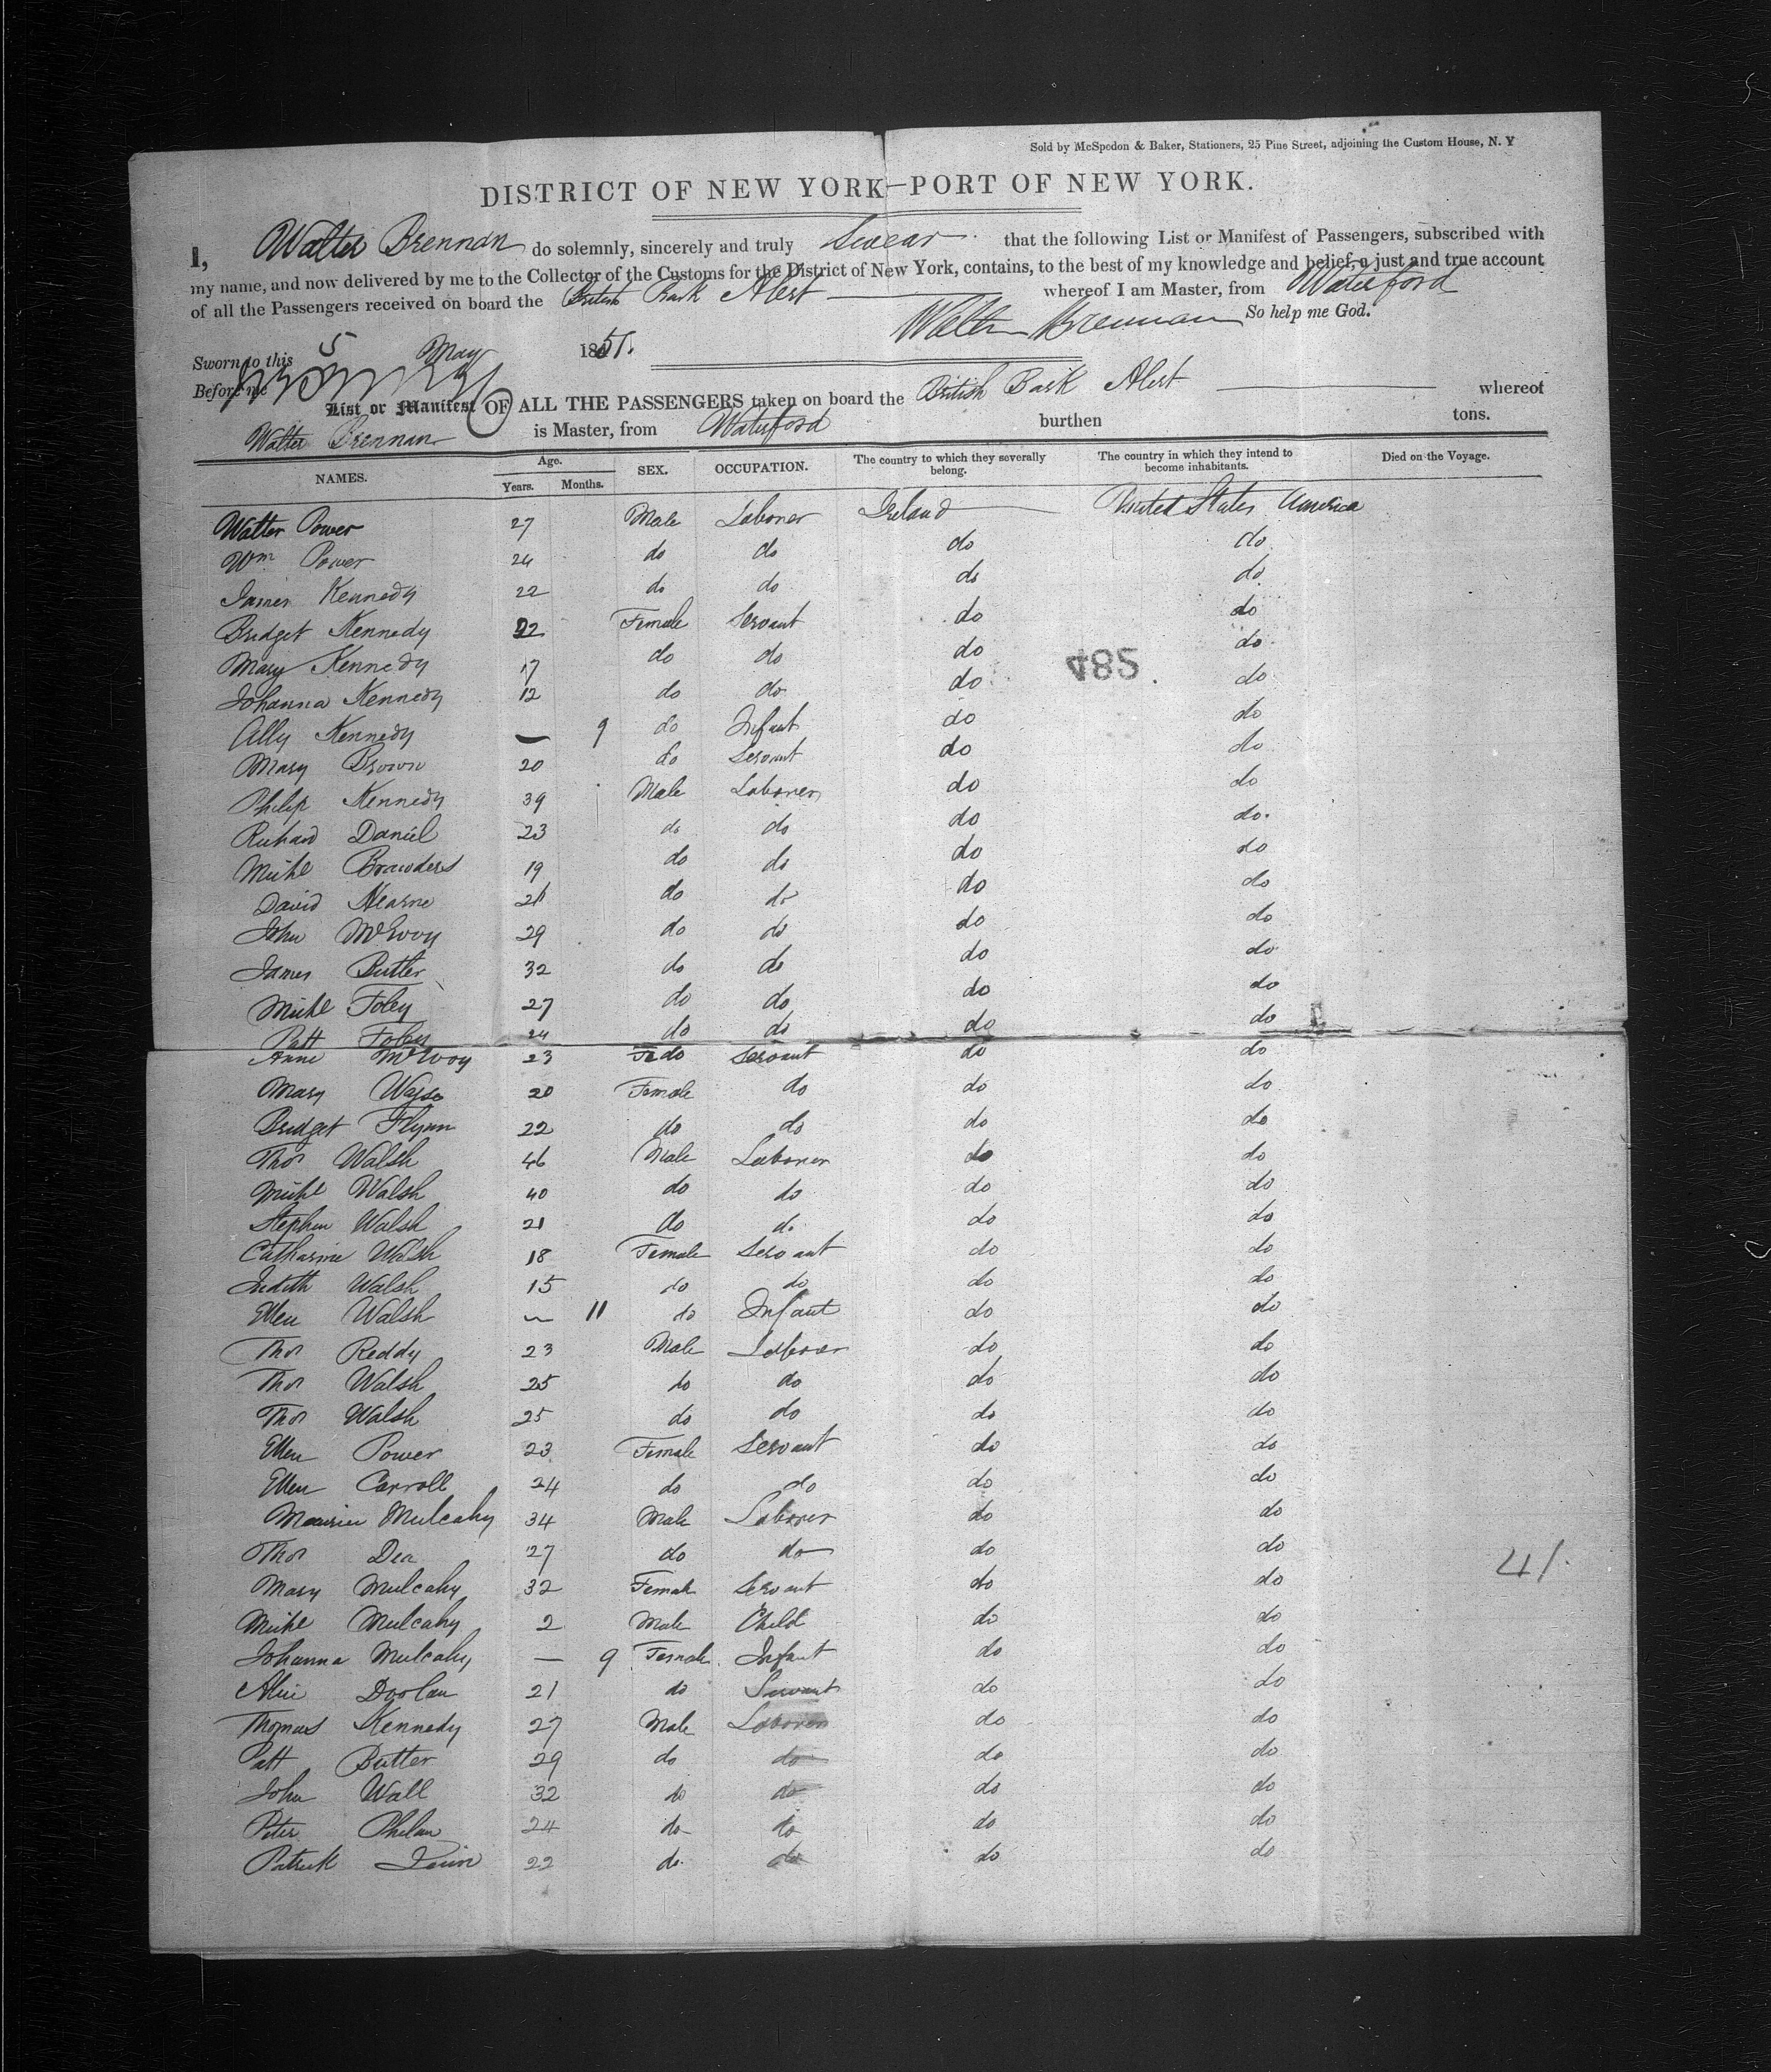 Sold by McSpedon & Baker, Stationers, 25 Pine Street, adjoining the Custom House, N. Y
DISTRICT OF NEW YORK—PORT OF NEW YORK.
I, Walter Brennan do solemnly, sincerely and truly Swear that the following List or Manifest of Passengers, subscribed with
my name, and now delivered by me to the Collector of the Customs for the District of New York, contains, to the best of my knowledge and belief, a just and true account
of all the Passengers received on board the British Bark Alert whereof I am Master, from Waterford
Walter Brennan So help me God.
Sworn to this 5 May 1851.
Before me
List or Manifest OF ALL THE PASSENGERS taken on board the British Bark Alert whereof
Walter Brennan is Master, from Waterford burthen tons.
NAMES. Age. Years. Months. SEX. OCCUPATION. The country to which they severally belong. The country in which they intend to become inhabitants. Died on the Voyage.
Walter Power 27 Male Laborer Ireland United States America
Wm Power 24 do do do do
James Kennedy 22 do do do do
Bridget Kennedy 22 Female Servant do do
Mary Kennedy 17 do do do do
485.
Johanna Kennedy 12 do do do do
Ally Kennedy — 9 do Infant do do
Mary Brown 20 do Servant do do
Philip Kennedy 39 Male Laborer do do
Richard Daniel 23 do do do do
Michl 19 do do do do
David Hearne do do do do
John McEvoy 29 do do do do
James Butler 32 do do do do
Michl Foley 27 do do do do
Patt Foley 24 do do do do
Anne McEvoy 23 Fe do Servant do do
Mary Wyse 20 Female do do do
Bridget Flynn 22 do do do do
Thos Walsh 46 Male Laborer do do
Michl Walsh 40 do do do do
Stephen Walsh 21 do do do do
Catharine Walsh 18 Female Servant do do
Judith Walsh 15 do do do do
Ellen Walsh — 11 do Infant do do
Thos Reddy 23 Male Laborer do do
Thos Walsh 25 do do do do
Thos Walsh 25 do do do do
Ellen Power 23 Female Servant do do
Ellen Carroll 24 do do do do
Maurice Mulcahy 34 Male Laborer do do
Thos Dea 27 do do do do
41
Mary Mulcahy 32 Female Servant do do
Michl Mulcahy 2 Male Child do do
Johanna Mulcahy — 9 Female Infant do do
Alice Doolan 21 do Servant do do
Thomas Kennedy 27 Male Laborer do do
Patt Butler 29 do do do do
John Wall 32 do do do do
Peter Phelan 24 do do do do
Patrick 22 do do do do